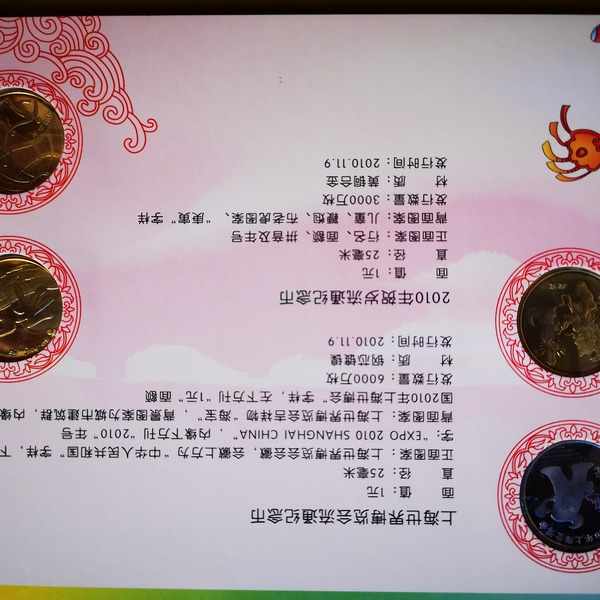 上海世界博览会流通纪念币
面 值：1元
直 径：25毫米
正面图案：上海世界博览会会徽，会徽上方为"中华人民共和国"字样，下
字："EXPO 2010 SHANGHAI CHINA"，内缘下方刊"2010"年号
背面图案：上海世界博览会吉祥物"海宝"，背景图案为城市建筑群，内缘
国2010年上海世界博览会"字样，左下方刊"1元"面额
发行数量：6000万枚
材 质：钢芯镀镍
发行时间：2010.11.9
2010年贺岁流通纪念币
面 值：1元
直 径：25毫米
正面图案：行名、面额、拼音及年号
背面图案：儿童、鞭炮、布老虎图案、"庚寅"字样
发行数量：3000万枚
材 质：黄铜合金
发行时间：2010.11.9